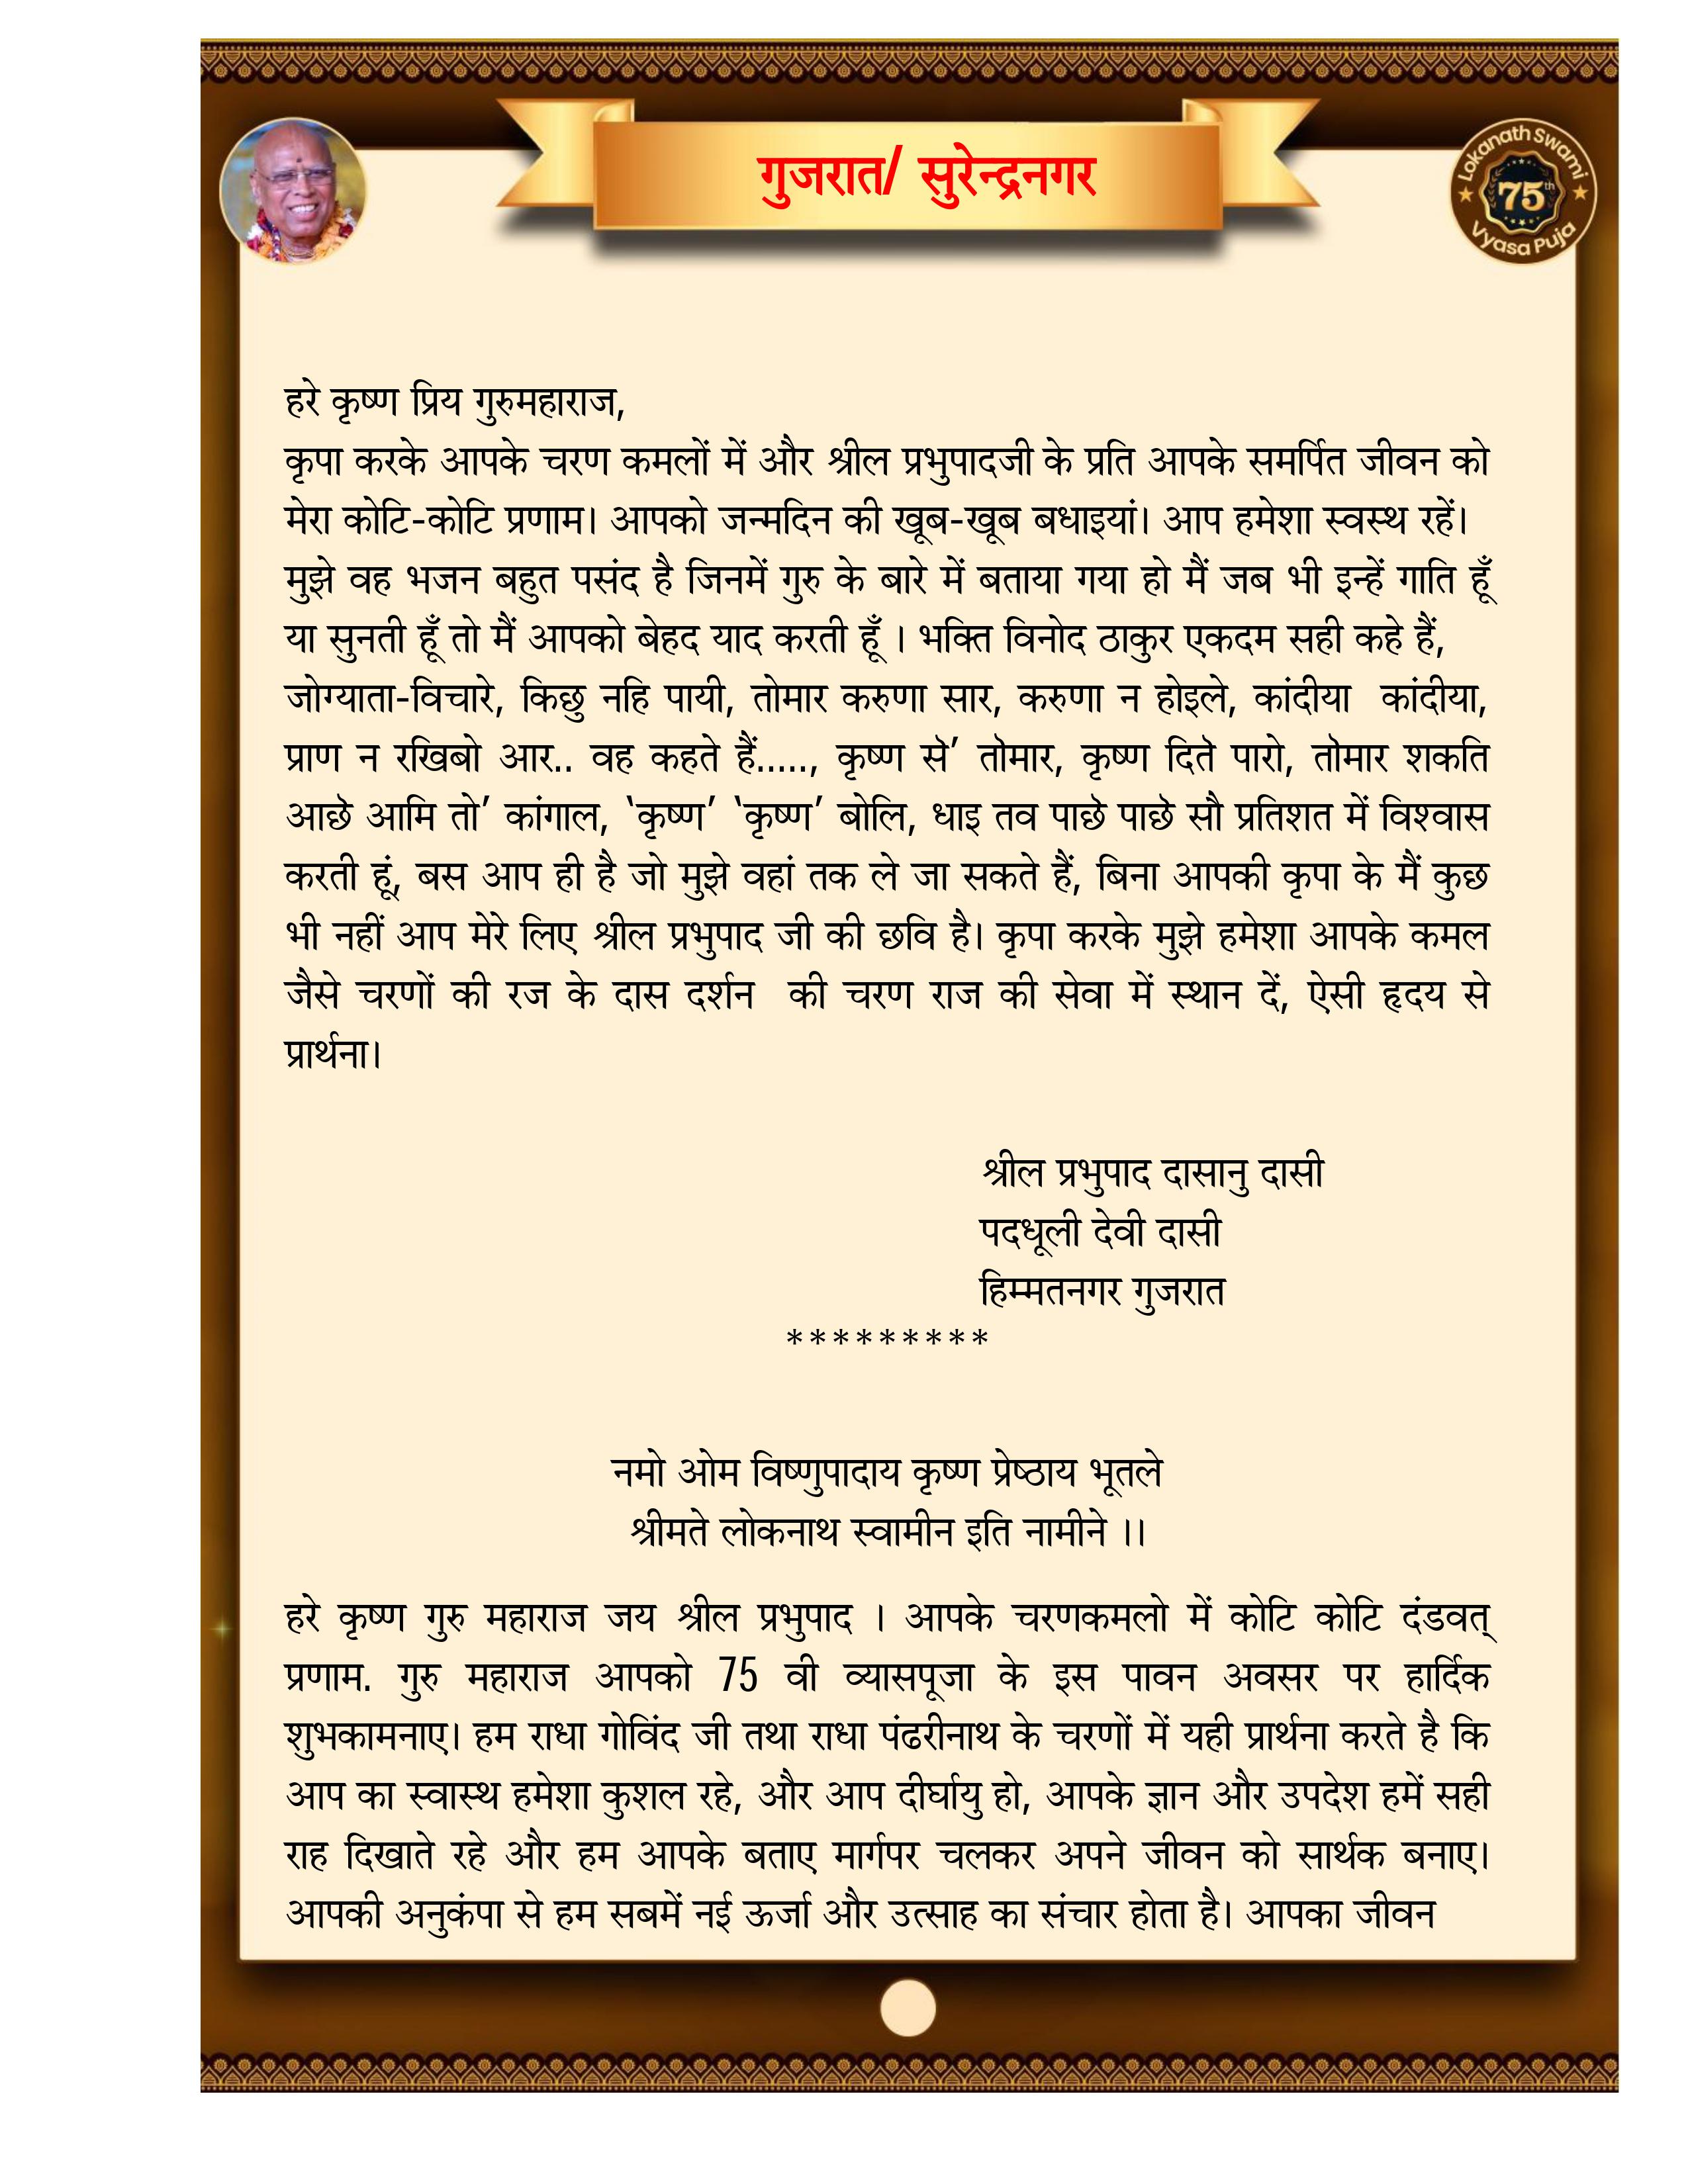 गुजरात/ सुरेन्द्रनगर
Lokanath Swami
75th
Vyasa Puja
हरे कृष्ण प्रिय गुरुमहाराज,
कृपा करके आपके चरण कमलों में और श्रील प्रभुपादजी के प्रति आपके समर्पित जीवन को
मेरा कोटि-कोटि प्रणाम। आपको जन्मदिन की खूब-खूब बधाइयां। आप हमेशा स्वस्थ रहें।
मुझे वह भजन बहुत पसंद है जिनमें गुरु के बारे में बताया गया हो मैं जब भी इन्हें गाति हूँ
या सुनती हूँ तो मैं आपको बेहद याद करती हूँ । भक्ति विनोद ठाकुर एकदम सही कहे हैं,
जोग्याता-विचारे, किछु नहि पायी, तोमार करुणा सार, करुणा न होइले, कांदीया  कांदीया,
प्राण न रखिबो आर.. वह कहते हैं....., कृष्ण सॆ’ तॊमार, कृष्ण दितॆ पारो, तॊमार शकति
आछॆ आमि तो’ कांगाल, ‘कृष्ण’ ‘कृष्ण’ बोलि, धाइ तव पाछॆ पाछॆ सौ प्रतिशत में विश्वास
करती हूं, बस आप ही है जो मुझे वहां तक ले जा सकते हैं, बिना आपकी कृपा के मैं कुछ
भी नहीं आप मेरे लिए श्रील प्रभुपाद जी की छवि है। कृपा करके मुझे हमेशा आपके कमल
जैसे चरणों की रज के दास दर्शन  की चरण राज की सेवा में स्थान दें, ऐसी हृदय से
प्रार्थना।
श्रील प्रभुपाद दासानु दासी
पदधूली देवी दासी
हिम्मतनगर गुजरात
*********
नमो ओम विष्णुपादाय कृष्ण प्रेष्ठाय भूतले
श्रीमते लोकनाथ स्वामीन इति नामीने ।।
हरे कृष्ण गुरु महाराज जय श्रील प्रभुपाद । आपके चरणकमलो में कोटि कोटि दंडवत्
प्रणाम. गुरु महाराज आपको 75 वी व्यासपूजा के इस पावन अवसर पर हार्दिक
शुभकामनाए। हम राधा गोविंद जी तथा राधा पंढरीनाथ के चरणों में यही प्रार्थना करते है कि
आप का स्वास्थ हमेशा कुशल रहे, और आप दीर्घायु हो, आपके ज्ञान और उपदेश हमें सही
राह दिखाते रहे और हम आपके बताए मार्गपर चलकर अपने जीवन को सार्थक बनाए।
आपकी अनुकंपा से हम सबमें नई ऊर्जा और उत्साह का संचार होता है। आपका जीवन